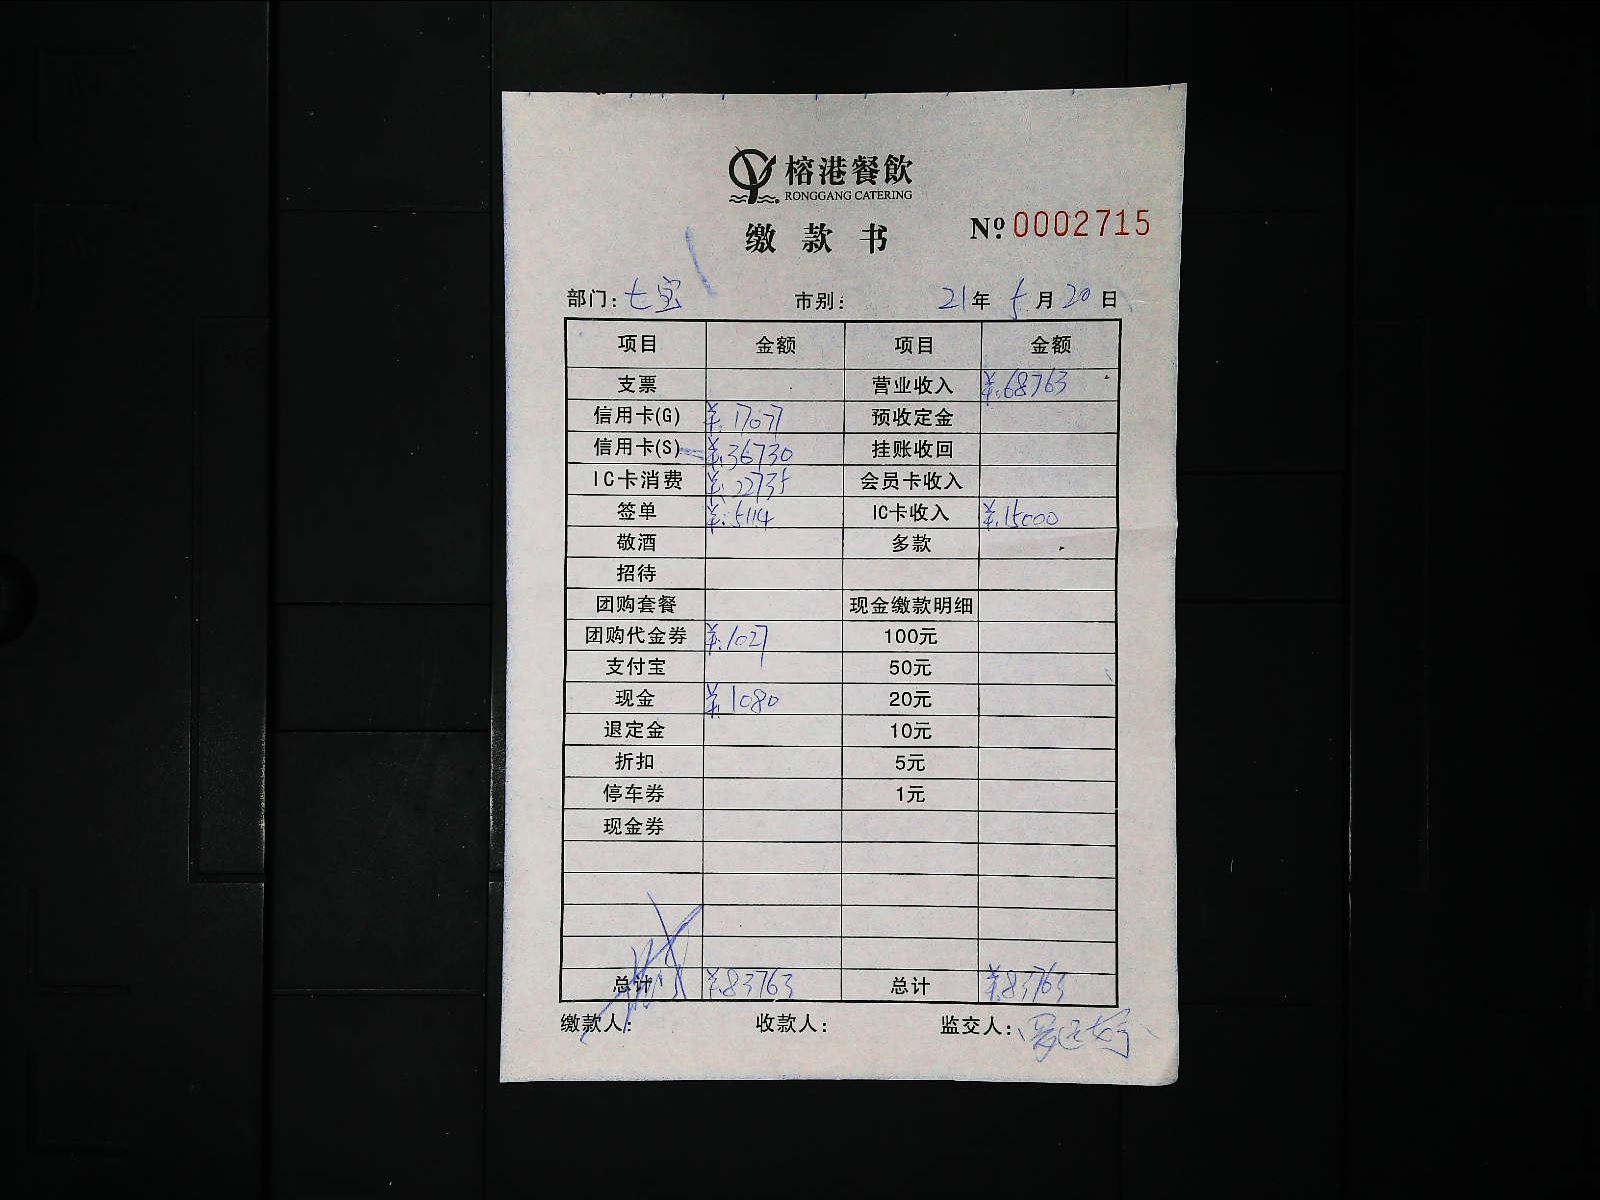 榕港餐飲
RONGGANG CATERING
缴款书 Nº 0002715
部门: 七宝 市别: 21年 5月 20日
项目 金额 项目 金额
支票 营业收入 ¥:68763
信用卡(G) ¥:17077 预收定金
信用卡(S) ¥:36730 挂账收回
IC卡消费 ¥:22735 会员卡收入
签单 ¥:5114 IC卡收入 ¥:15000
敬酒 多款
招待
团购套餐 现金缴款明细
团购代金券 ¥:1027 100元
支付宝 50元
现金 ¥:1080 20元
退定金 10元
折扣 5元
停车券 1元
现金券
总计 ¥:83763 总计 ¥:83763
缴款人: 收款人: 监交人: